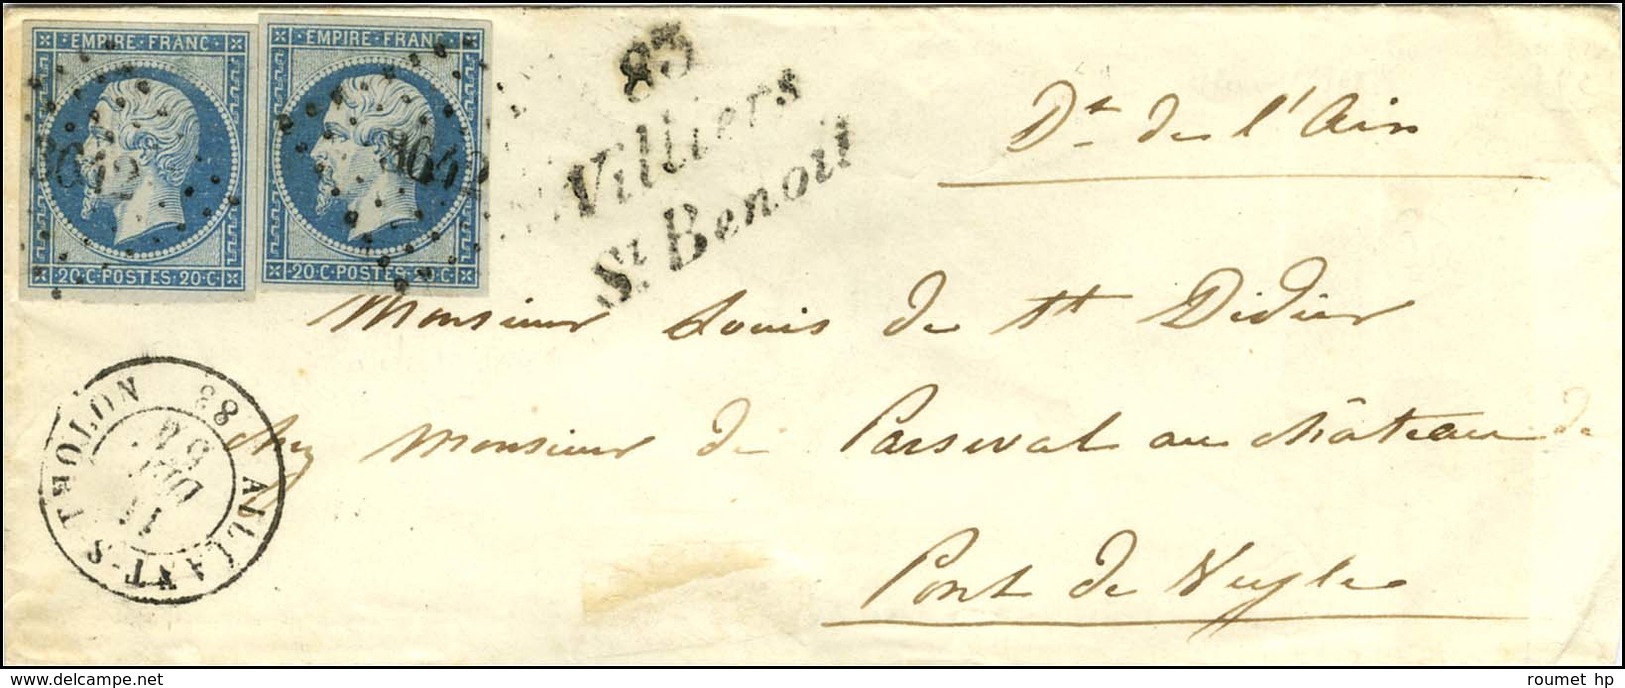 EMPIRE FRANC
EMPIRE FRANC
3642
3642
20·C·POSTES·20·C
20·C·POSTES·20·C
83
Villiers
St Benoit
Dt de l'Ain
Monsieur Louis de St Didier
chez Monsieur de Parseval au château de
Pont de Veyle
AILLANT-S-THOLON 83
11
DEC
roumet hp